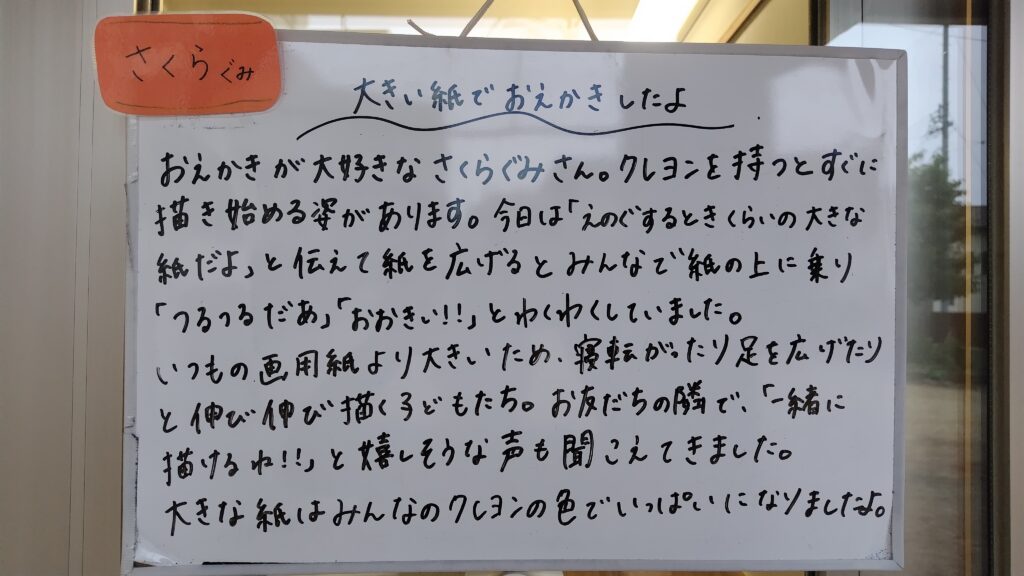 さくらぐみ
大きい紙でおえかきしたよ
おえかきが大好きなさくらぐみさん。クレヨンを持つとすぐに
描き始める姿があります。今日は「えのぐするときくらいの大きな
紙だよ」と伝えて紙を広げるとみんなで紙の上に乗り
「つるつるだあ」「おおきい!!」とわくわくしていました。
いつもの画用紙より大きいため、寝転がったり足を広げたり
と伸び伸び描く子どもたち。お友だちの隣で、「一緒に
描けるね!!」と嬉しそうな声も聞こえてきました。
大きな紙はみんなのクレヨンの色でいっぱいになりましたよ。